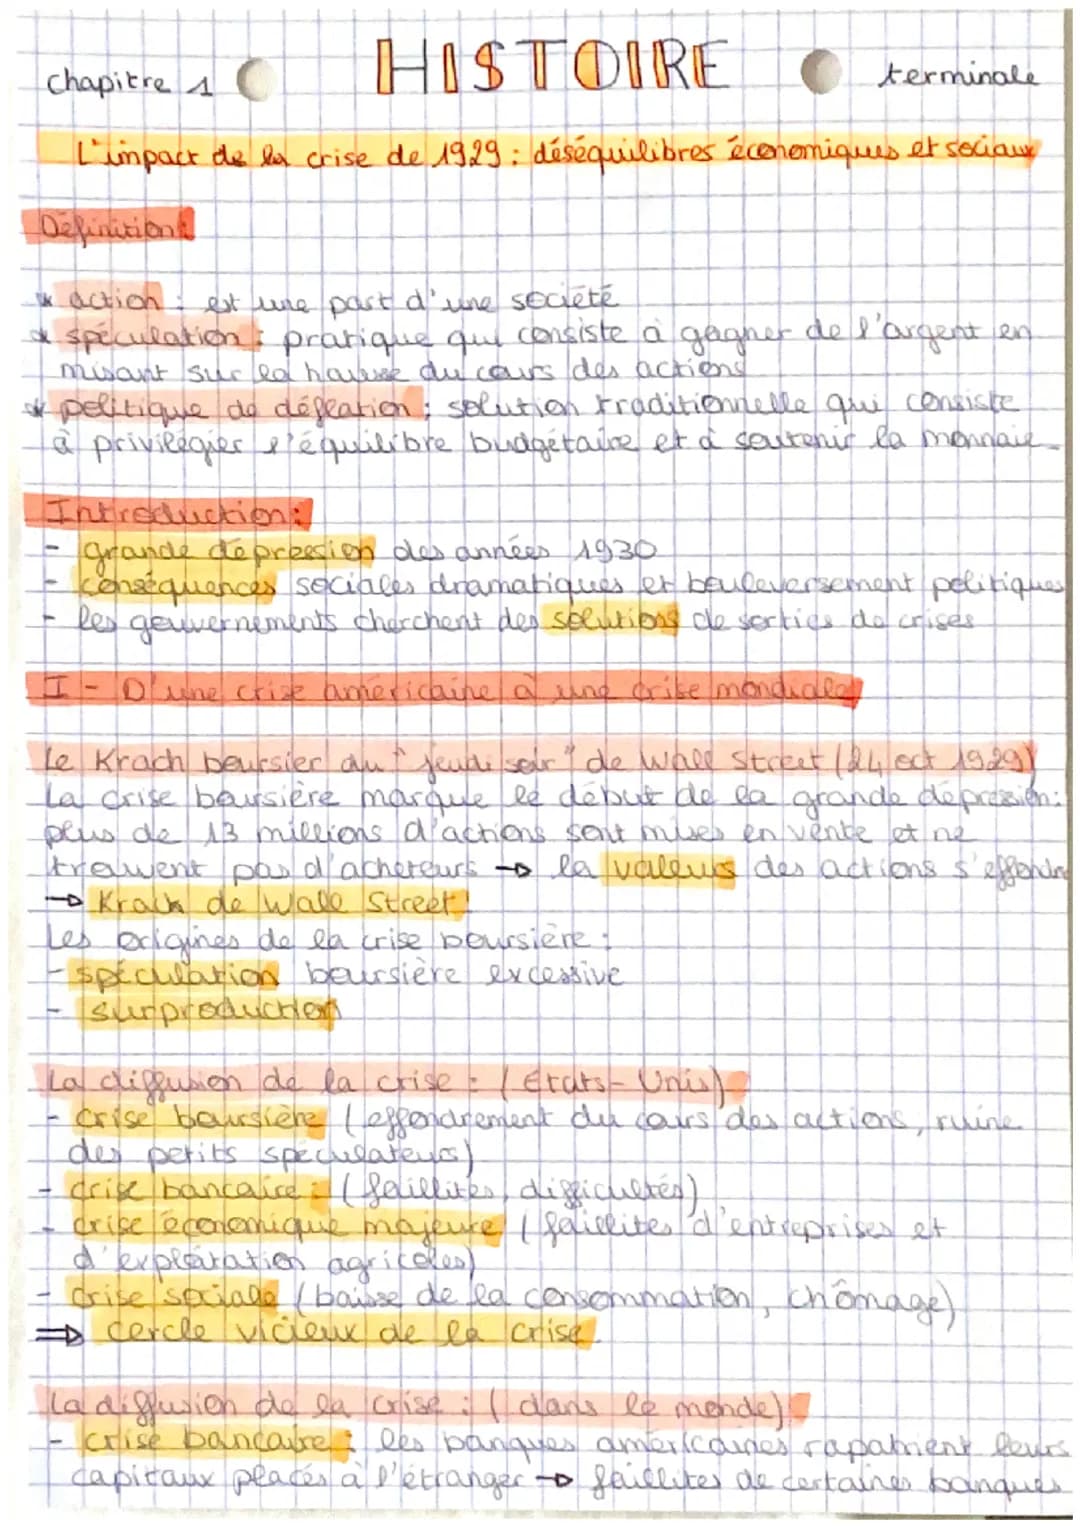 HISTOIRE
chapitre 1
terminale
L'impact de la crise de 1929 : déséquilibres économiques et sociaux
Définition :
* action : est une part d'une société
* spéculation : pratique qui consiste à gagner de l'argent en
misant sur la hausse du cours des actions
* politique de déflation : solution traditionnelle qui consiste
à privilégier l'équilibre budgétaire et à soutenir la monnaie.
Introduction :
- grande dépression des années 1930
- conséquences sociales dramatiques et bouleversement politiques
- les gouvernements cherchent des solutions de sorties de crises
I - D'une crise américaine à une crise mondiale
Le Krach boursier du "jeudi soir" de Wall Street (24 oct 1929)
La crise boursière marque le début de la grande dépression :
plus de 13 millions d'actions sont mises en vente et ne
trouvent pas d'acheteurs → la valeurs des actions s'effondre
→ Krach de Wall Street !
Les origines de la crise boursière :
- spéculation boursière excessive
- surproduction
La diffusion de la crise : (Etats-Unis)
- crise boursière (effondrement du cours des actions, ruine
des petits spéculateurs)
- crise bancaire : (faillites, difficultés)
- crise économique majeure (faillites d'entreprises et
d'exploitation agricoles)
- crise sociale (baisse de la consommation, chômage)
⇒ cercle vicieux de la crise.
La diffusion de la crise : (dans le monde)
- crise bancaire : les banques américaines rapatrient leurs
capitaux placés à l'étranger → faillites de certaines banques